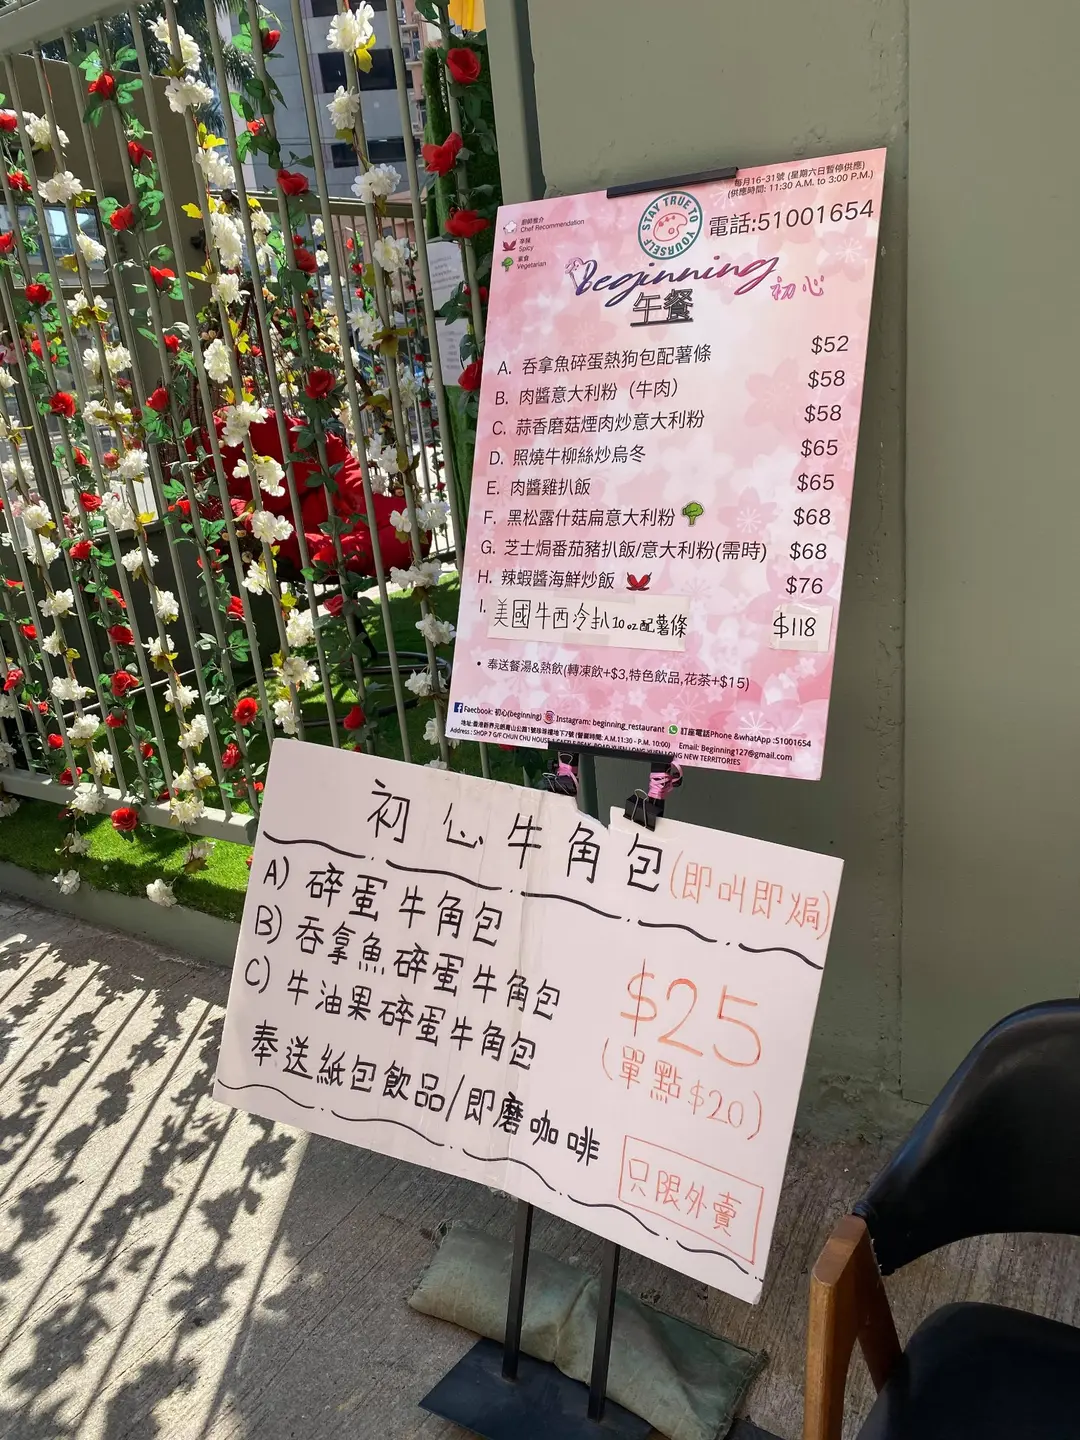 每月16-31號 (星期六日暫停供應)
(供應時間: 11:30 A.M. to 3:00 P.M.)
廚師推介
Chef Recommendation
辛辣
Spicy
素食
Vegetarian
STAY TRUE TO YOURSELF
電話:51001654
Beginning 初心
午餐
A. 吞拿魚碎蛋熱狗包配薯條 $52
B. 肉醬意大利粉 (牛肉) $58
C. 蒜香磨菇煙肉炒意大利粉 $58
D. 照燒牛柳絲炒烏冬 $65
E. 肉醬雞扒飯 $65
F. 黑松露什菇扁意大利粉 $68
G. 芝士焗番茄豬扒飯/意大利粉(需時) $68
H. 辣蝦醬海鮮炒飯 $76
I. 美國牛西冷扒10oz配薯條 $118
• 奉送餐湯&熱飲(轉凍飲+$3,特色飲品,花茶+$15)
Faecbook: 初心(beginning) Instagram: beginning_restaurant 訂座電話Phone &whatApp :51001654
地址:香港新界元朗青山公路1號珍珠樓地下7號 (營業時間: A.M.11:30 - P.M. 10:00) Email: Beginning127@gmail.com
Address : SHOP 7 G/F CHUN CHU HOUSE 1 CASTLE PEAK ROAD YUEN LONG YUEN LONG NEW TERRITORIES
初心牛角包(即叫即焗)
A) 碎蛋牛角包
B) 吞拿魚碎蛋牛角包
C) 牛油果碎蛋牛角包
奉送紙包飲品/即磨咖啡
$25
(單點$20)
只限外賣